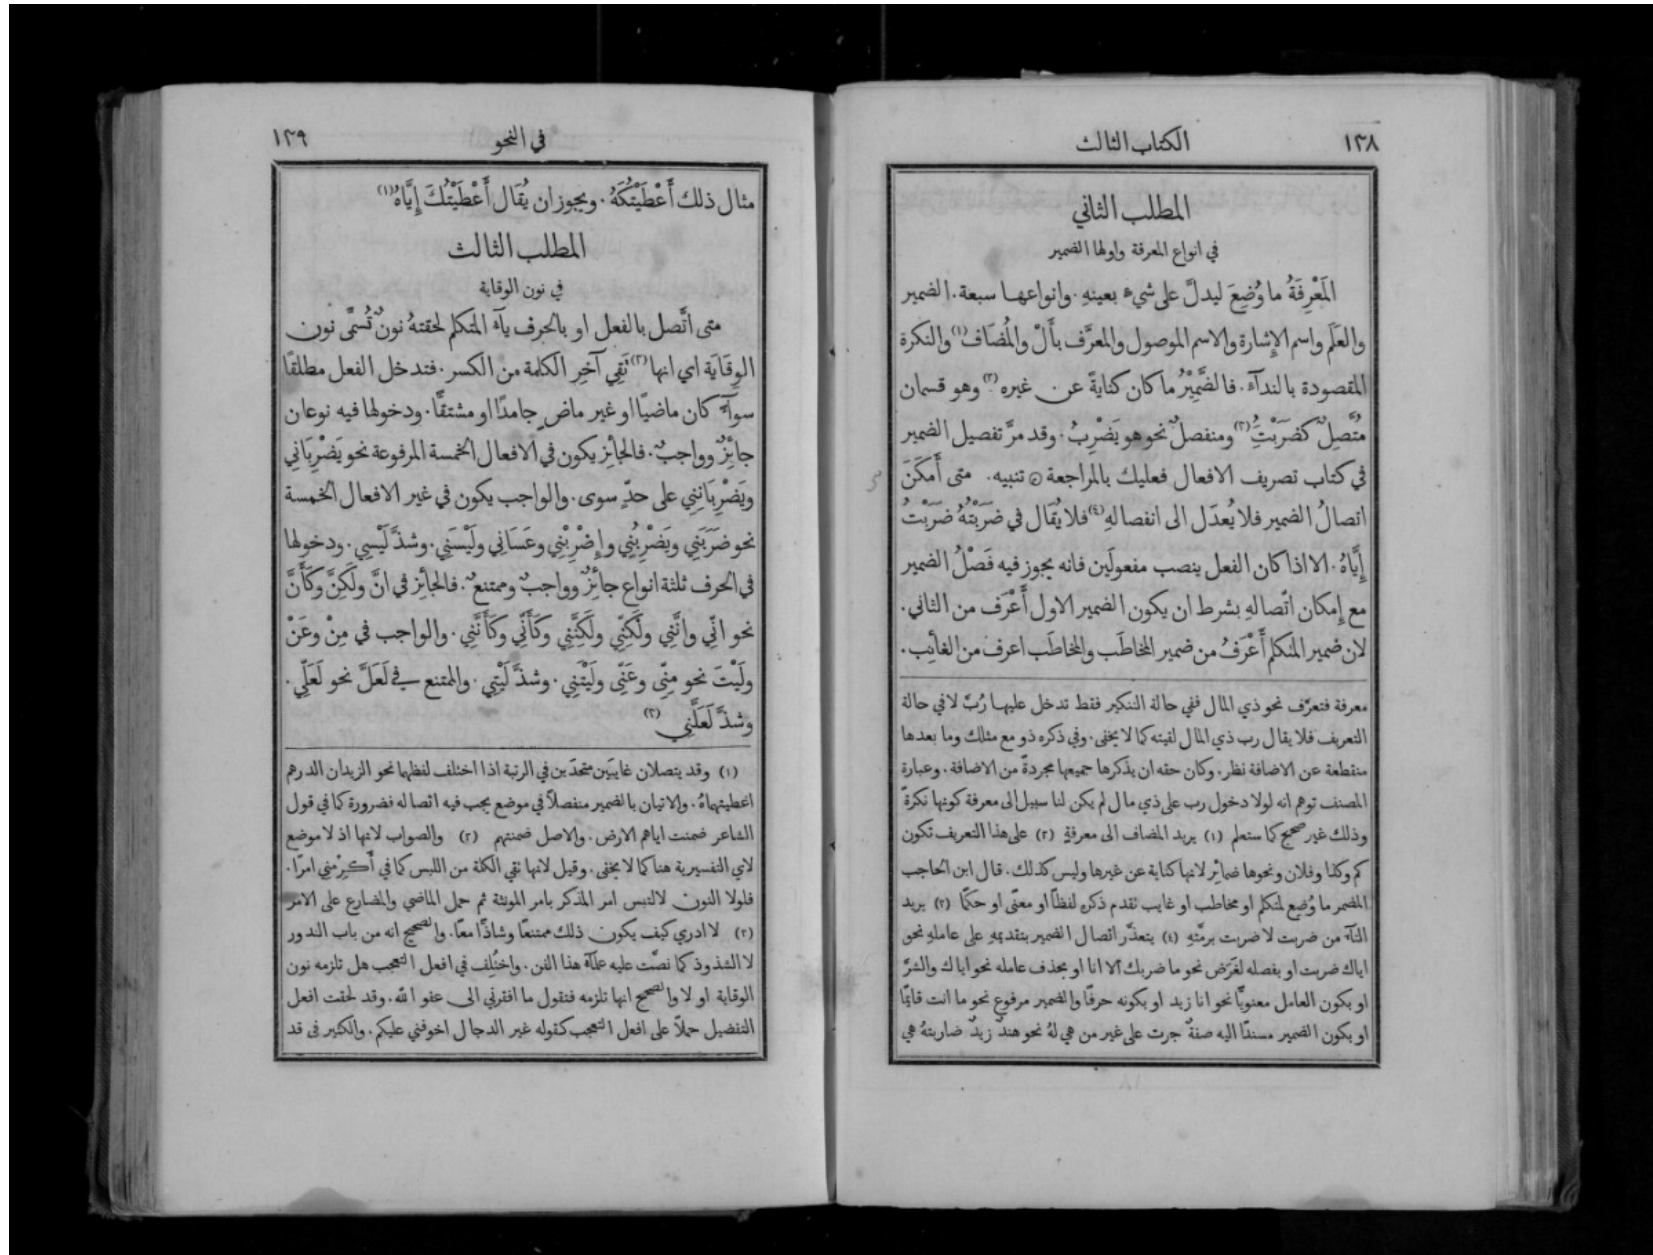 ١٣٨
الكتاب الثالث
المطلب الثاني
في انواع المعرفة واولها الضمير
المَعْرِفَةُ ما وُضِعَ ليدلَّ على شيءٍ بعينهِ. وانواعها سبعة. الضمير
والعَلَم واسم الإِشارة والاسم الموصول والمعرَّف بأَلْ والمُضَاف(١) والنكرة
المقصودة بالندآء. فالضَّمِيْرُ ما كان كنايةً عن غيره(٢) وهو قسمان
مُتَّصِلٌ كضَرَبْتُ(٣) ومنفصلٌ نحو هو يَضْرِبُ. وقد مرَّ تفصيل الضمير
في كتاب تصريف الافعال فعليك بالمراجعة ۞ تنبيه. متى أَمكَنَ
اتصالُ الضمير فلا يُعدَل الى انفصالهِ(٤) فلا يُقَال في ضَرَبْتُهُ ضَرَبْتُ
إِيَّاهُ. الا اذا كان الفعل ينصب مفعولَين فانه يجوز فيه فَصْلُ الضمير
مع إِمكان اتّصالهِ بشرط ان يكون الضمير الاول أَعْرَف من الثاني.
لان ضمير المتكلم أَعْرَفُ من ضمير المخاطَب والمخاطَب اعرف من الغائب.
معرفة فتعرَّف نحو ذي المال ففي حالة التنكير فقط تدخل عليها رُبَّ لا في حالة
التعريف فلا يقال رب ذي المال لقيته كما لا يخفى. وفي ذكره ذو مع مثلك وما بعدها
منقطعة عن الاضافة نظر. وكان حقه ان يذكرها جميعها مجردةً من الاضافة. وعبارة
المصنف توهم انه لولا دخول رب على ذي مال لم يكن لنا سبيل الى معرفة كونها نكرةً
وذلك غير صحيح كما ستعلم (١) يريد المضاف الى معرفةٍ (٢) على هذا التعريف تكون
كم وكذا وفلان ونحوها ضمائر لانها كناية عن غيرها وليس كذلك. قال ابن الحاجب
المضمر ما وُضِع لمتكلم او مخاطب او غايب تقدم ذكره لفظًا او معنًى او حكمًا (٣) يريد
التآء من ضربت لا ضربت برمَّتهِ (٤) يتعذَّر اتصال الضمير بتقديمهِ على عاملهِ نحو
اياك ضربت او بفصله لغَرَض نحو ما ضربك الا انا او بحذف عامله نحو اياك والشرَّ
او بكون العامل معنويًّا نحو انا زيد او بكونه حرفًا والضمير مرفوع نحو ما انت قايمًا
او بكون الضمير مسندًا اليه صفةٌ جرت على غير من هي لهُ نحو هندٌ زيدٌ ضاربتهُ هي
١٣٩
في النحو
مثال ذلك أَعْطَيْتُكَهُ. ويجوز ان يُقَال أَعْطَيْتُكَ إِيَّاهُ(١)
المطلب الثالث
في نون الوقاية
متى اتَّصل بالفعل او بالحرف يآء المتكلم لحقتهُ نونٌ تُسمَّى نون
الوِقَايَة اي انها(٢) تَقِي آخِر الكلمة من الكسر. فتدخل الفعل مطلقًا
سوآءٌ كان ماضيًا او غير ماضٍ جامدًا او مشتقًّا. ودخولها فيه نوعان
جائِزٌ وواجبٌ. فالجائِز يكون في الافعال الخمسة المرفوعة نحو يَضْرِبَانِي
ويَضْرِبَانِنِي على حدٍّ سوى. والواجب يكون في غير الافعال الخمسة
نحو ضَرَبَنِي ويَضْرِبُنِي وإِضْرِبْنِي وعَسَانِي ولَيْسَنِي. وشذَّ لَيْسِي. ودخولها
في الحرف ثلثة انواع جائِزٌ وواجبٌ وممتنعٌ. فالجائِز في انَّ ولَكِنَّ وكَأَنَّ
نحو انِّي وانَّنِي ولَكِنِّي ولَكِنَّنِي وكَأَنِّي وكَأَنَّنِي. والواجب في مِنْ وعَنْ
ولَيْتَ نحو مِنِّي وعَنِّي ولَيْتَنِي. وشذَّ لَيْتِي. والممتنع في لَعَلَّ نحو لَعَلِّي.
وشذَّ لَعَلَّنِي(٣)
(١) وقد يتصلان غايبَين متحدَين في الرتبة اذا اختلف لفظهما نحو الزيدان الدرهم
اعطيتهماهُ. والاتيان بالضمير منفصلًا في موضع يجب فيه اتصاله فضرورة كما في قول
الشاعر ضمنت اياهم الارض. والاصل ضمنتهم (٢) والصواب لانها اذ لا موضع
لاي التفسيرية هنا كما لا يخفى. وقيل لانها تقي الكلمة من اللبس كما في أَكرِمْني امرًا.
فلولا النون لالتبس امر المذكر بامر المونثة ثم حمل الماضي والمضارع على الامر
(٣) لا ادري كيف يكون ذلك ممتنعًا وشاذًّا معًا. والصحيح انه من باب الندور
لا الشذوذ كما نصَّت عليه علمآء هذا الفن. واختُلِف في افعل التعجب هل تلزمه نون
الوقاية او لا والصحيح انها تلزمه فتقول ما افقرني الى عفو الله. وقد لحقت افعل
التفضيل حملًا على افعل التعجب كقوله غير الدجال اخوفني عليكم. والكثير في قد